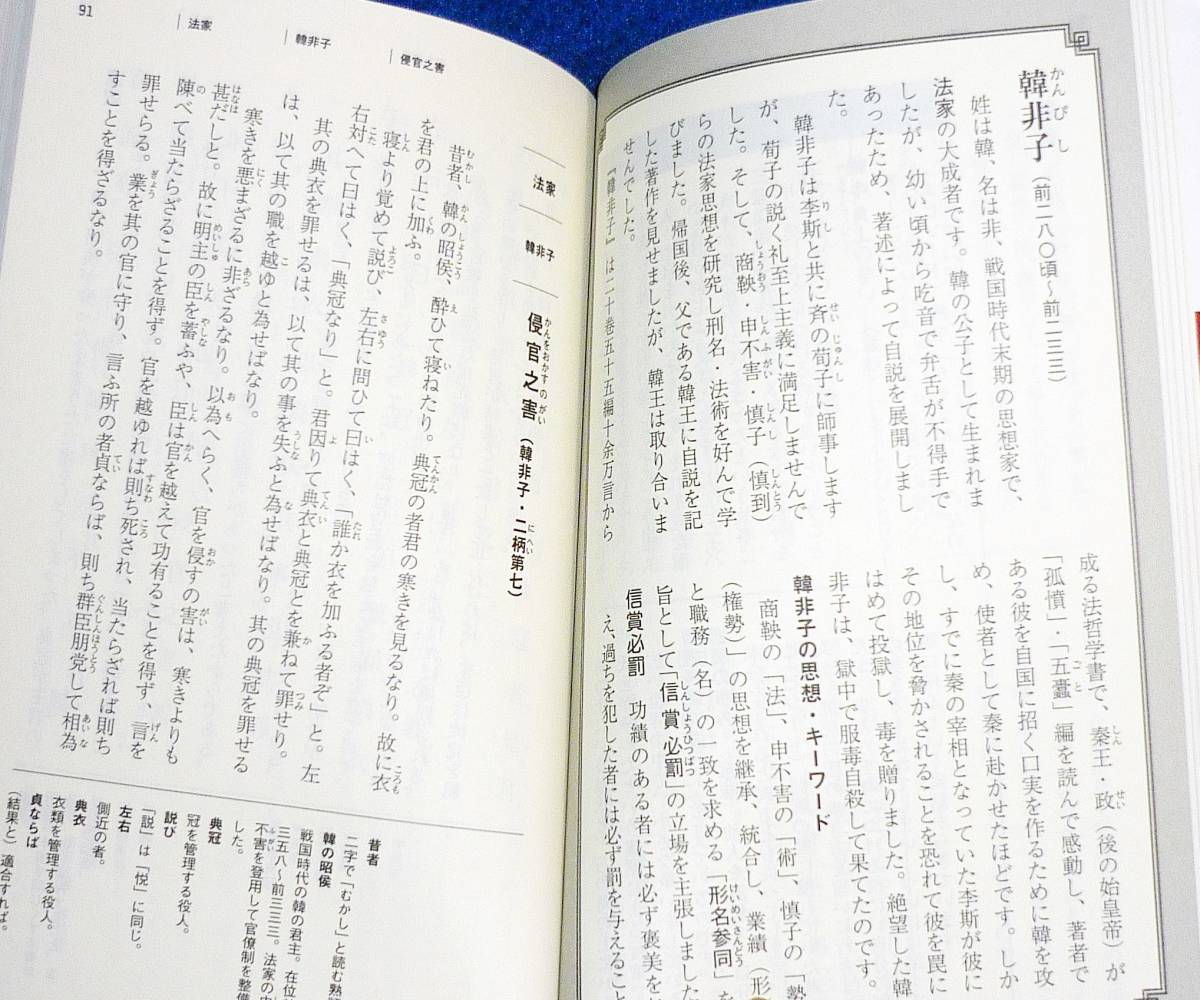 韓非子（前二八〇頃～前二三三）
姓は韓、名は非、戦国時代末期の思想家で、
法家の大成者です。韓の公子として生まれま
したが、幼い頃から吃音で弁舌が不得手で
あったため、著述によって自説を展開しまし
た。
韓非子は李斯と共に斉の荀子に師事します
が、荀子の説く礼至上主義に満足しませんで
した。そして、商鞅・申不害・慎子（慎到）
らの法家思想を研究し刑名・法術を好んで学
びました。帰国後、父である韓王に自説を記
した著作を見せましたが、韓王は取り合いま
せんでした。
『韓非子』は二十巻五十五編十余万言から
成る法哲学書で、秦王・政（後の始皇帝）が
「孤憤」・「五蠹」編を読んで感動し、著者で
ある彼を自国に招く口実を作るために韓を攻
め、使者として秦に赴かせたほどです。しか
し、すでに秦の宰相となっていた李斯が彼に
その地位を脅かされることを恐れて彼を罠に
はめて投獄し、毒を贈りました。絶望した韓
非子は、獄中で服毒自殺して果てたのです。
韓非子の思想・キーワード
商鞅の「法」、申不害の「術」、慎子の「勢
（権勢）」の思想を継承、統合し、業績（形
と職務（名）の一致を求める「形名参同」を
旨として「信賞必罰」の立場を主張しました
信賞必罰　功績のある者には必ず褒美を
え、過ちを犯した者には必ず罰を与えること
法家
韓非子
侵官之害（韓非子・二柄第七）
昔者、韓の昭侯、酔ひて寝ねたり。典冠の者君の寒きを見るなり。故に衣
を君の上に加ふ。
寝より覚めて説び、左右に問ひて曰はく、「誰か衣を加ふる者ぞ」と。左
右対へて曰はく、「典冠なり」と。君因りて典衣と典冠とを兼ねて罪せり。
其の典衣を罪せるは、以て其の事を失ふと為せばなり。其の典冠を罪せる
は、以て其の職を越ゆと為せばなり。
寒きを悪まざるに非ざるなり。以為へらく、官を侵すの害は、寒きよりも
甚だしと。故に明主の臣を蓄ふや、臣は官を越えて功有ることを得ず、言を
陳べて当たらざることを得ず。官を越ゆれば則ち死され、当たらざれば則ち
罪せらる。業を其の官に守り、言ふ所の者貞ならば、則ち群臣朋党して相為
すことを得ざるなり。
昔者
二字で「むかし」と読む熟
韓の昭侯
戦国時代の韓の君主。在位
三五八～前三三三。法家の申
不害を登用して官僚制を整備
した。
典冠
冠を管理する役人。
説び
「説」は「悦」に同じ。
左右
側近の者。
典衣
衣類を管理する役人。
貞ならば
（結果と）適合すれば。
91
法家
韓非子
侵官之害